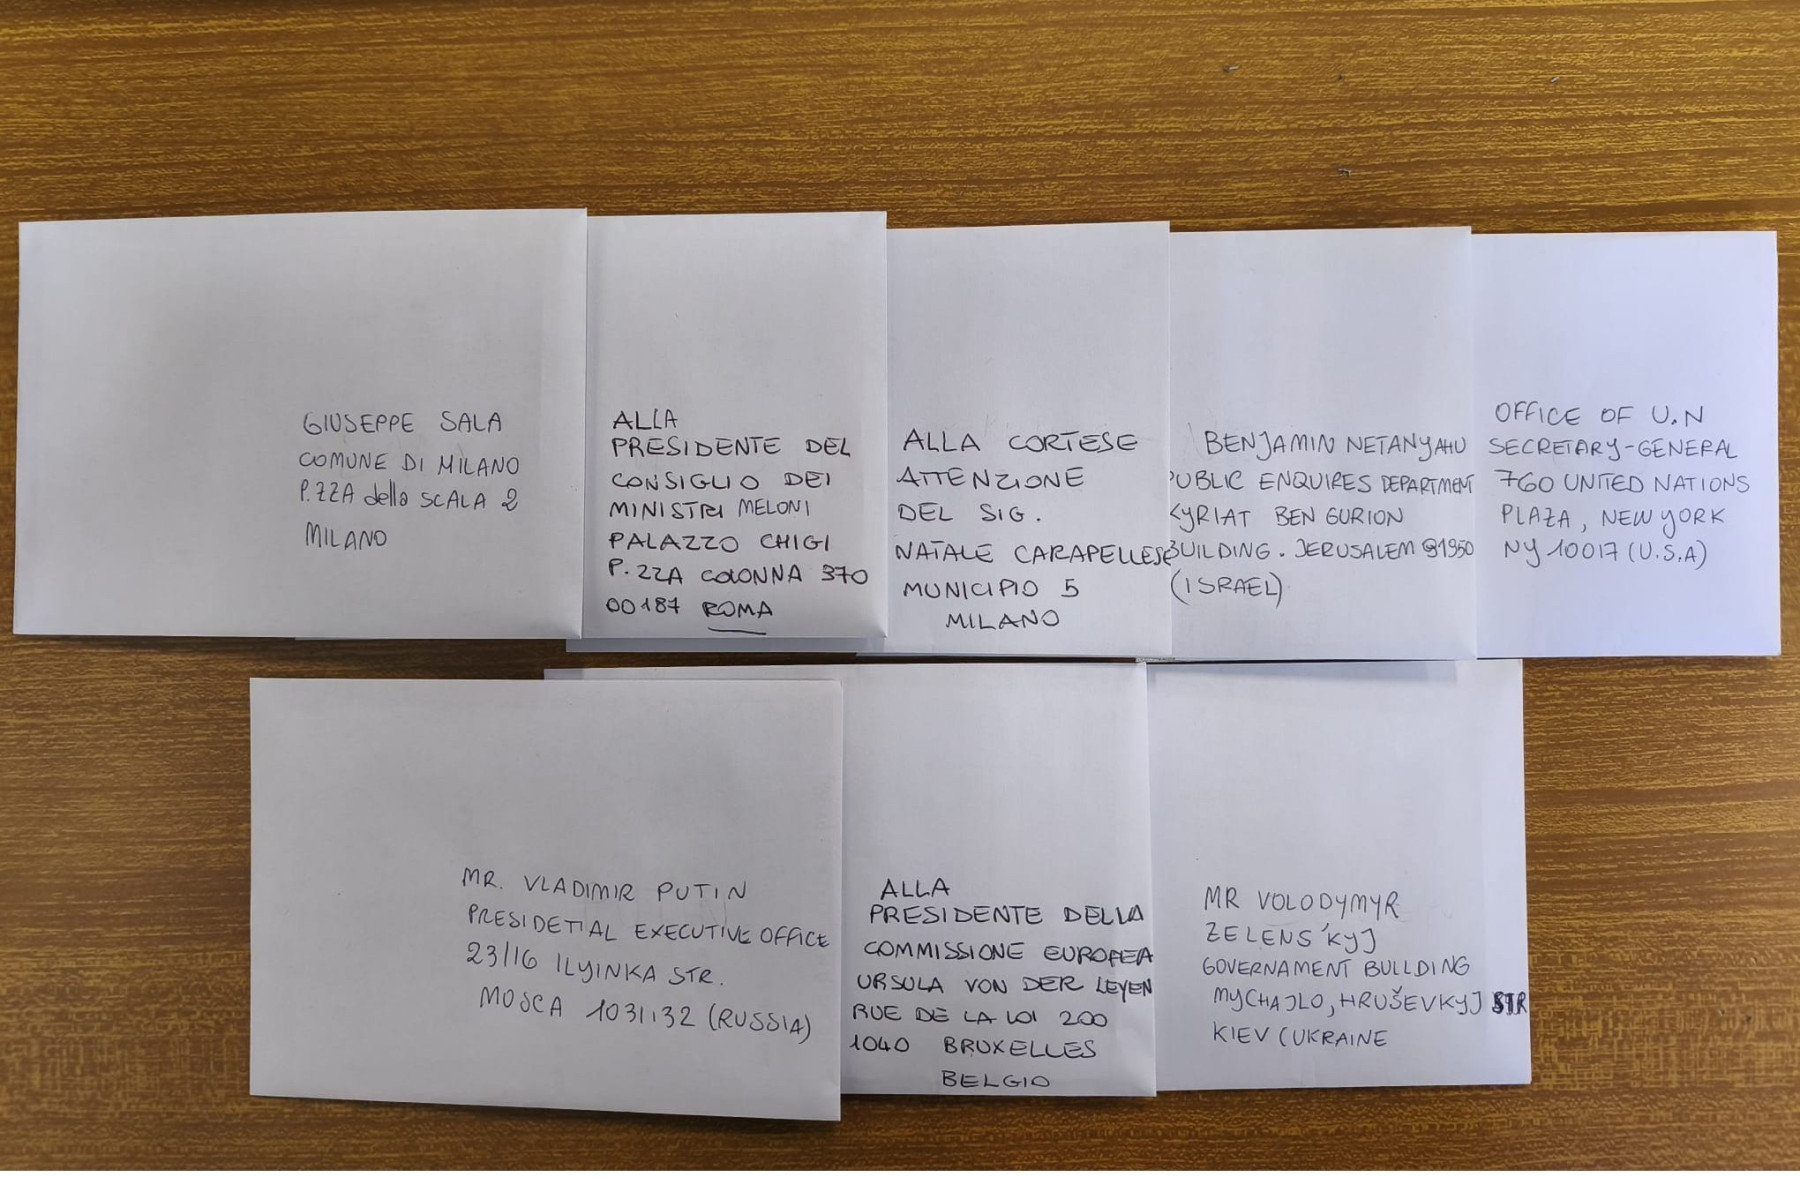 GIUSEPPE SALA
COMUNE DI MILANO
P.ZZA della SCALA 2
MILANO
ALLA
PRESIDENTE DEL
CONSIGLIO DEI
MINISTRI MELONI
PALAZZO CHIGI
P.ZZA COLONNA 370
00187 ROMA
ALLA CORTESE
ATTENZIONE
DEL SIG.
NATALE CARAPELLESE
MUNICIPIO 5
MILANO
BENJAMIN NETANYAHU
PUBLIC ENQUIRES DEPARTMENT
KYRIAT BEN GURION
BUILDING. JERUSALEM 91950
(ISRAEL)
OFFICE OF U.N
SECRETARY-GENERAL
760 UNITED NATIONS
PLAZA, NEW YORK
NY 10017 (U.S.A)
MR. VLADIMIR PUTIN
PRESIDETIAL EXECUTIVE OFFICE
23/16 ILYINKA STR.
MOSCA 103132 (RUSSIA)
ALLA
PRESIDENTE DELLA
COMMISSIONE EUROPEA
URSULA VON DER LEYEN
RUE DE LA LOI 200
1040 BRUXELLES
BELGIO
MR VOLODYMYR
ZELENS'KYJ
GOVERNAMENT BUILDING
MYCHAJLO, HRUŠEVKYJ STR
KIEV (UKRAINE